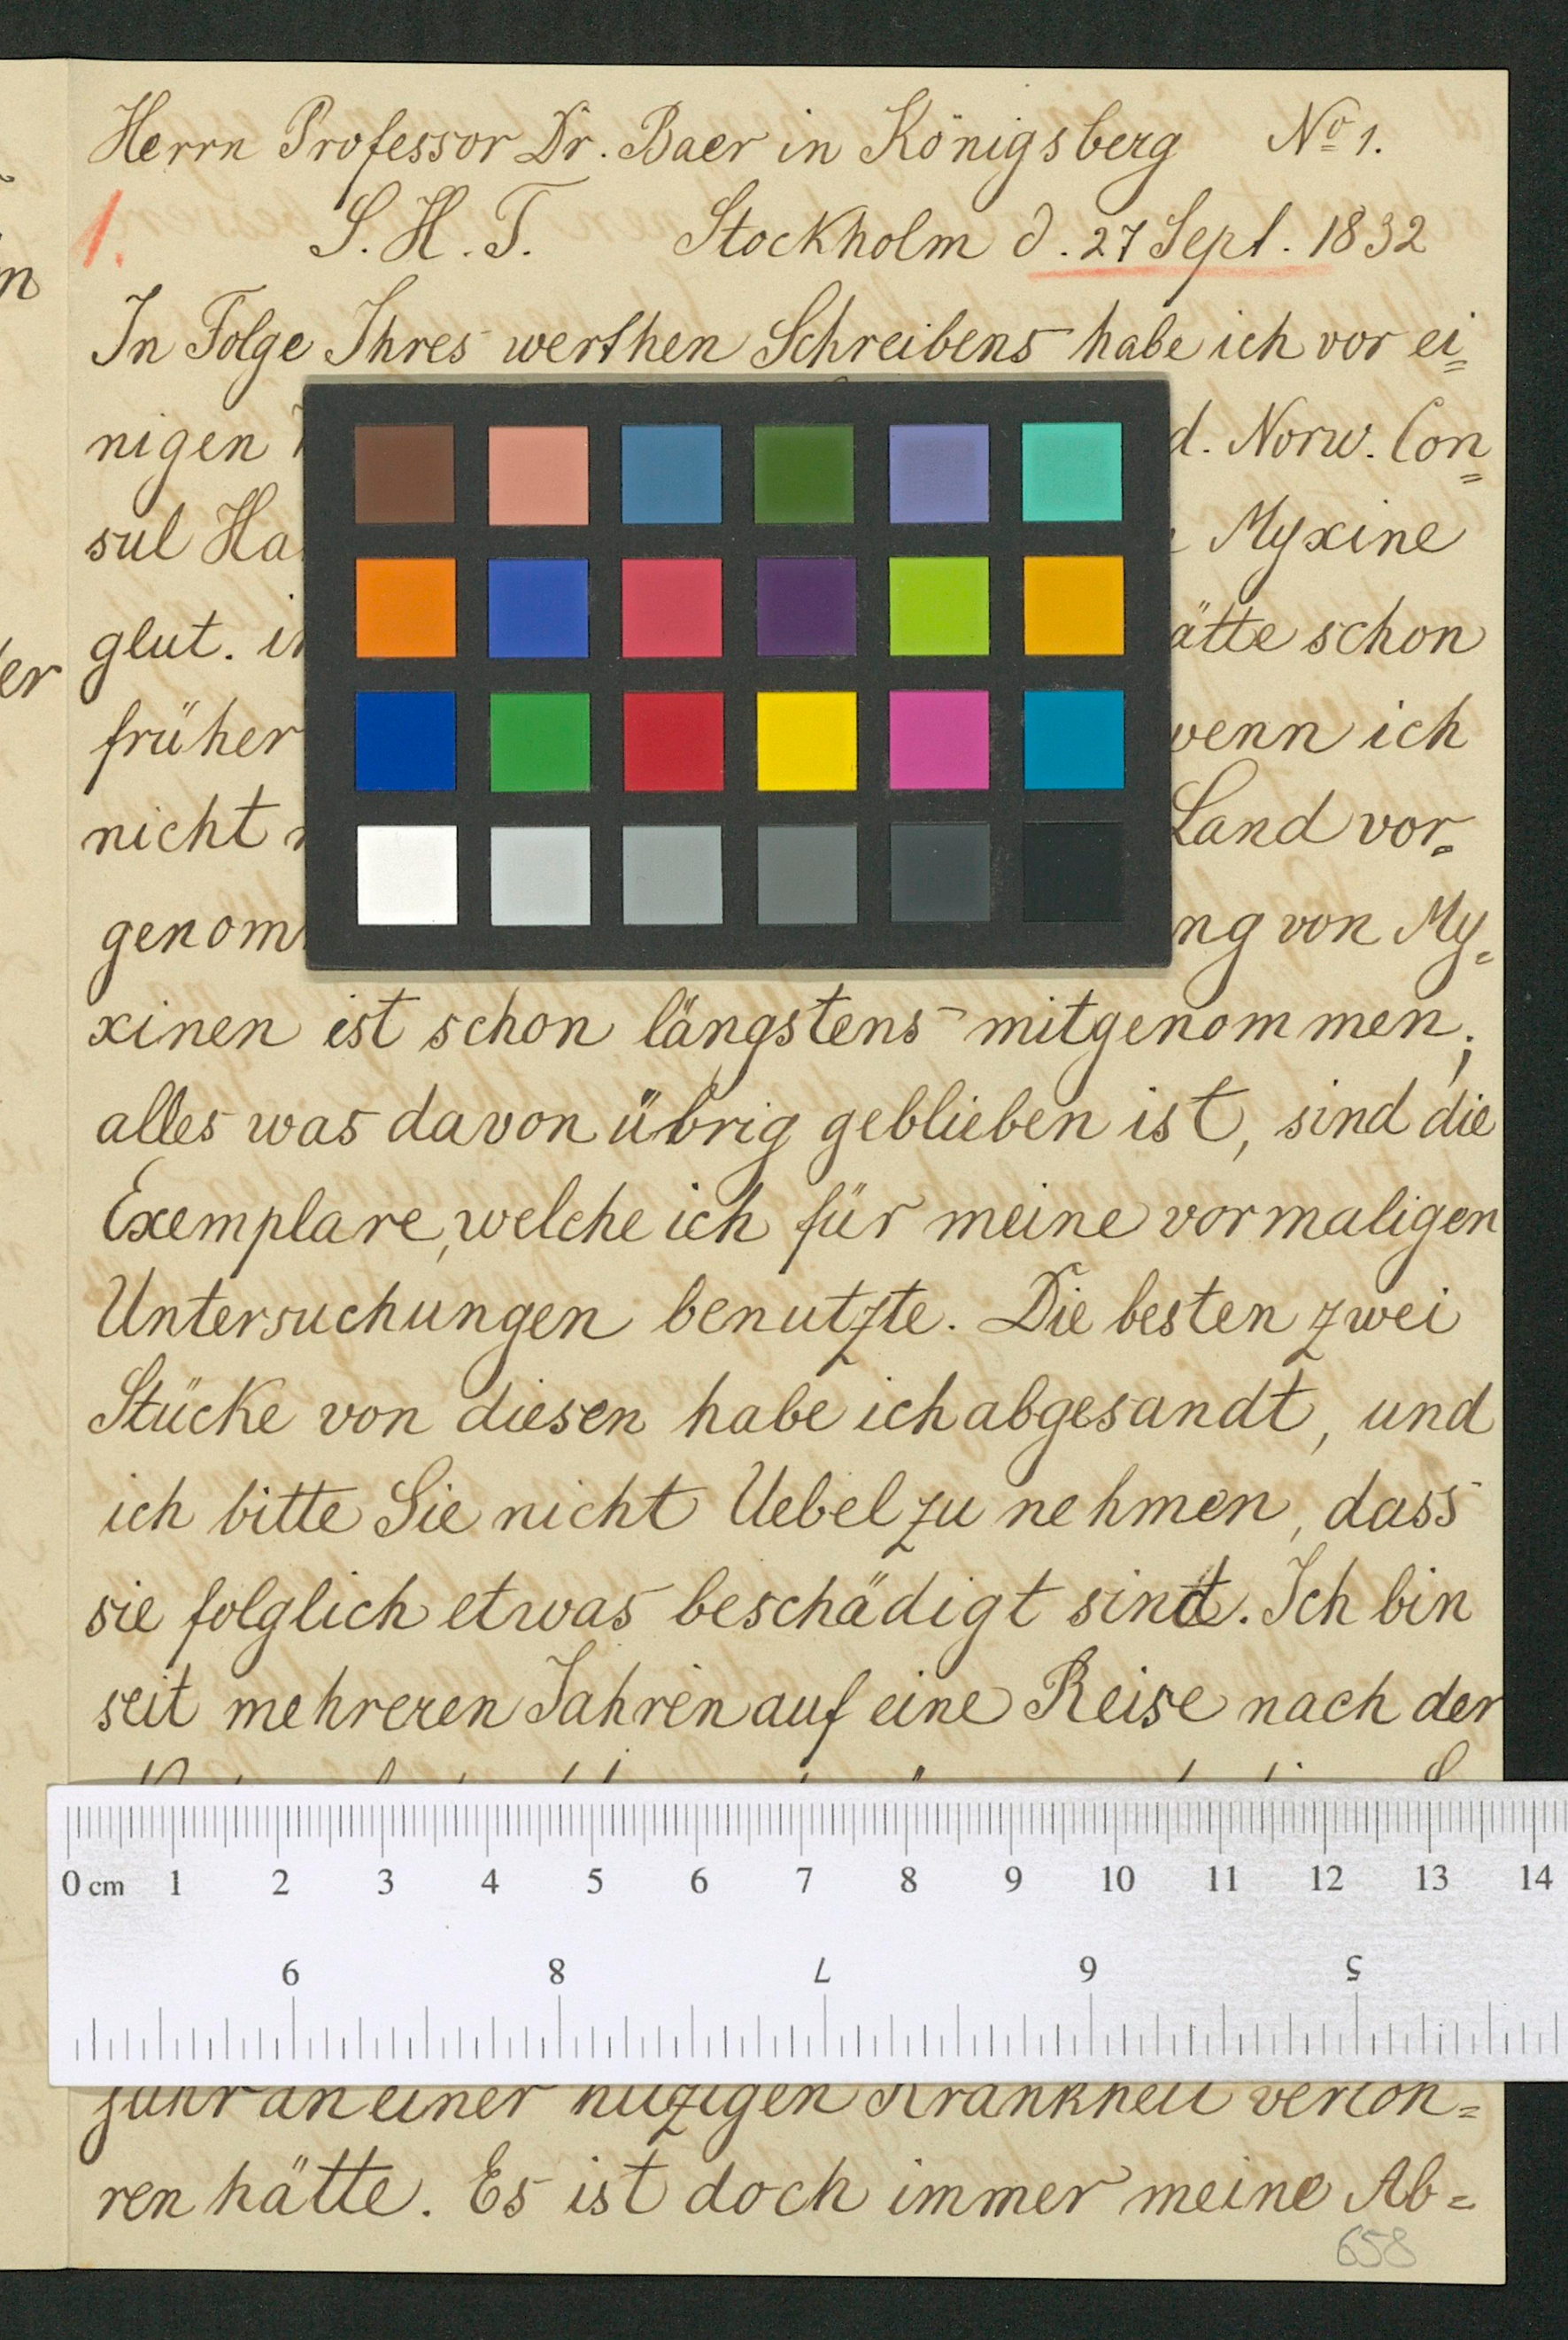 Herrn Professor Dr. Baer in Königsberg No 1.
1. S. H. T. Stockholm d. 27 Sept. 1832
In Folge Ihres werthen Schreibens habe ich vor ei=
nigen d. Norw. Con=
sul Ha Myxine
glut. ätte schon
früher wenn ich
nicht Land vor=
genom ng von My=
xinen ist schon längstens mitgenommen;
alles was davon übrig geblieben ist, sind die
Exemplare, welche ich für meine vormaligen
Untersuchungen benutzte. Die besten zwei
Stücke von diesen habe ich abgesandt, und
ich bitte Sie nicht Uebel zu nehmen, dass
sie folglich etwas beschädigt sind. Ich bin
seit mehreren Jahren auf eine Reise nach der
0 cm 1 2 3 4 5 6 7 8 9 10 11 12 13 14
9 8 7 6 5
jahr an einer hitzigen Krankheit verloh=
ren hätte. Es ist doch immer meine Ab=
658